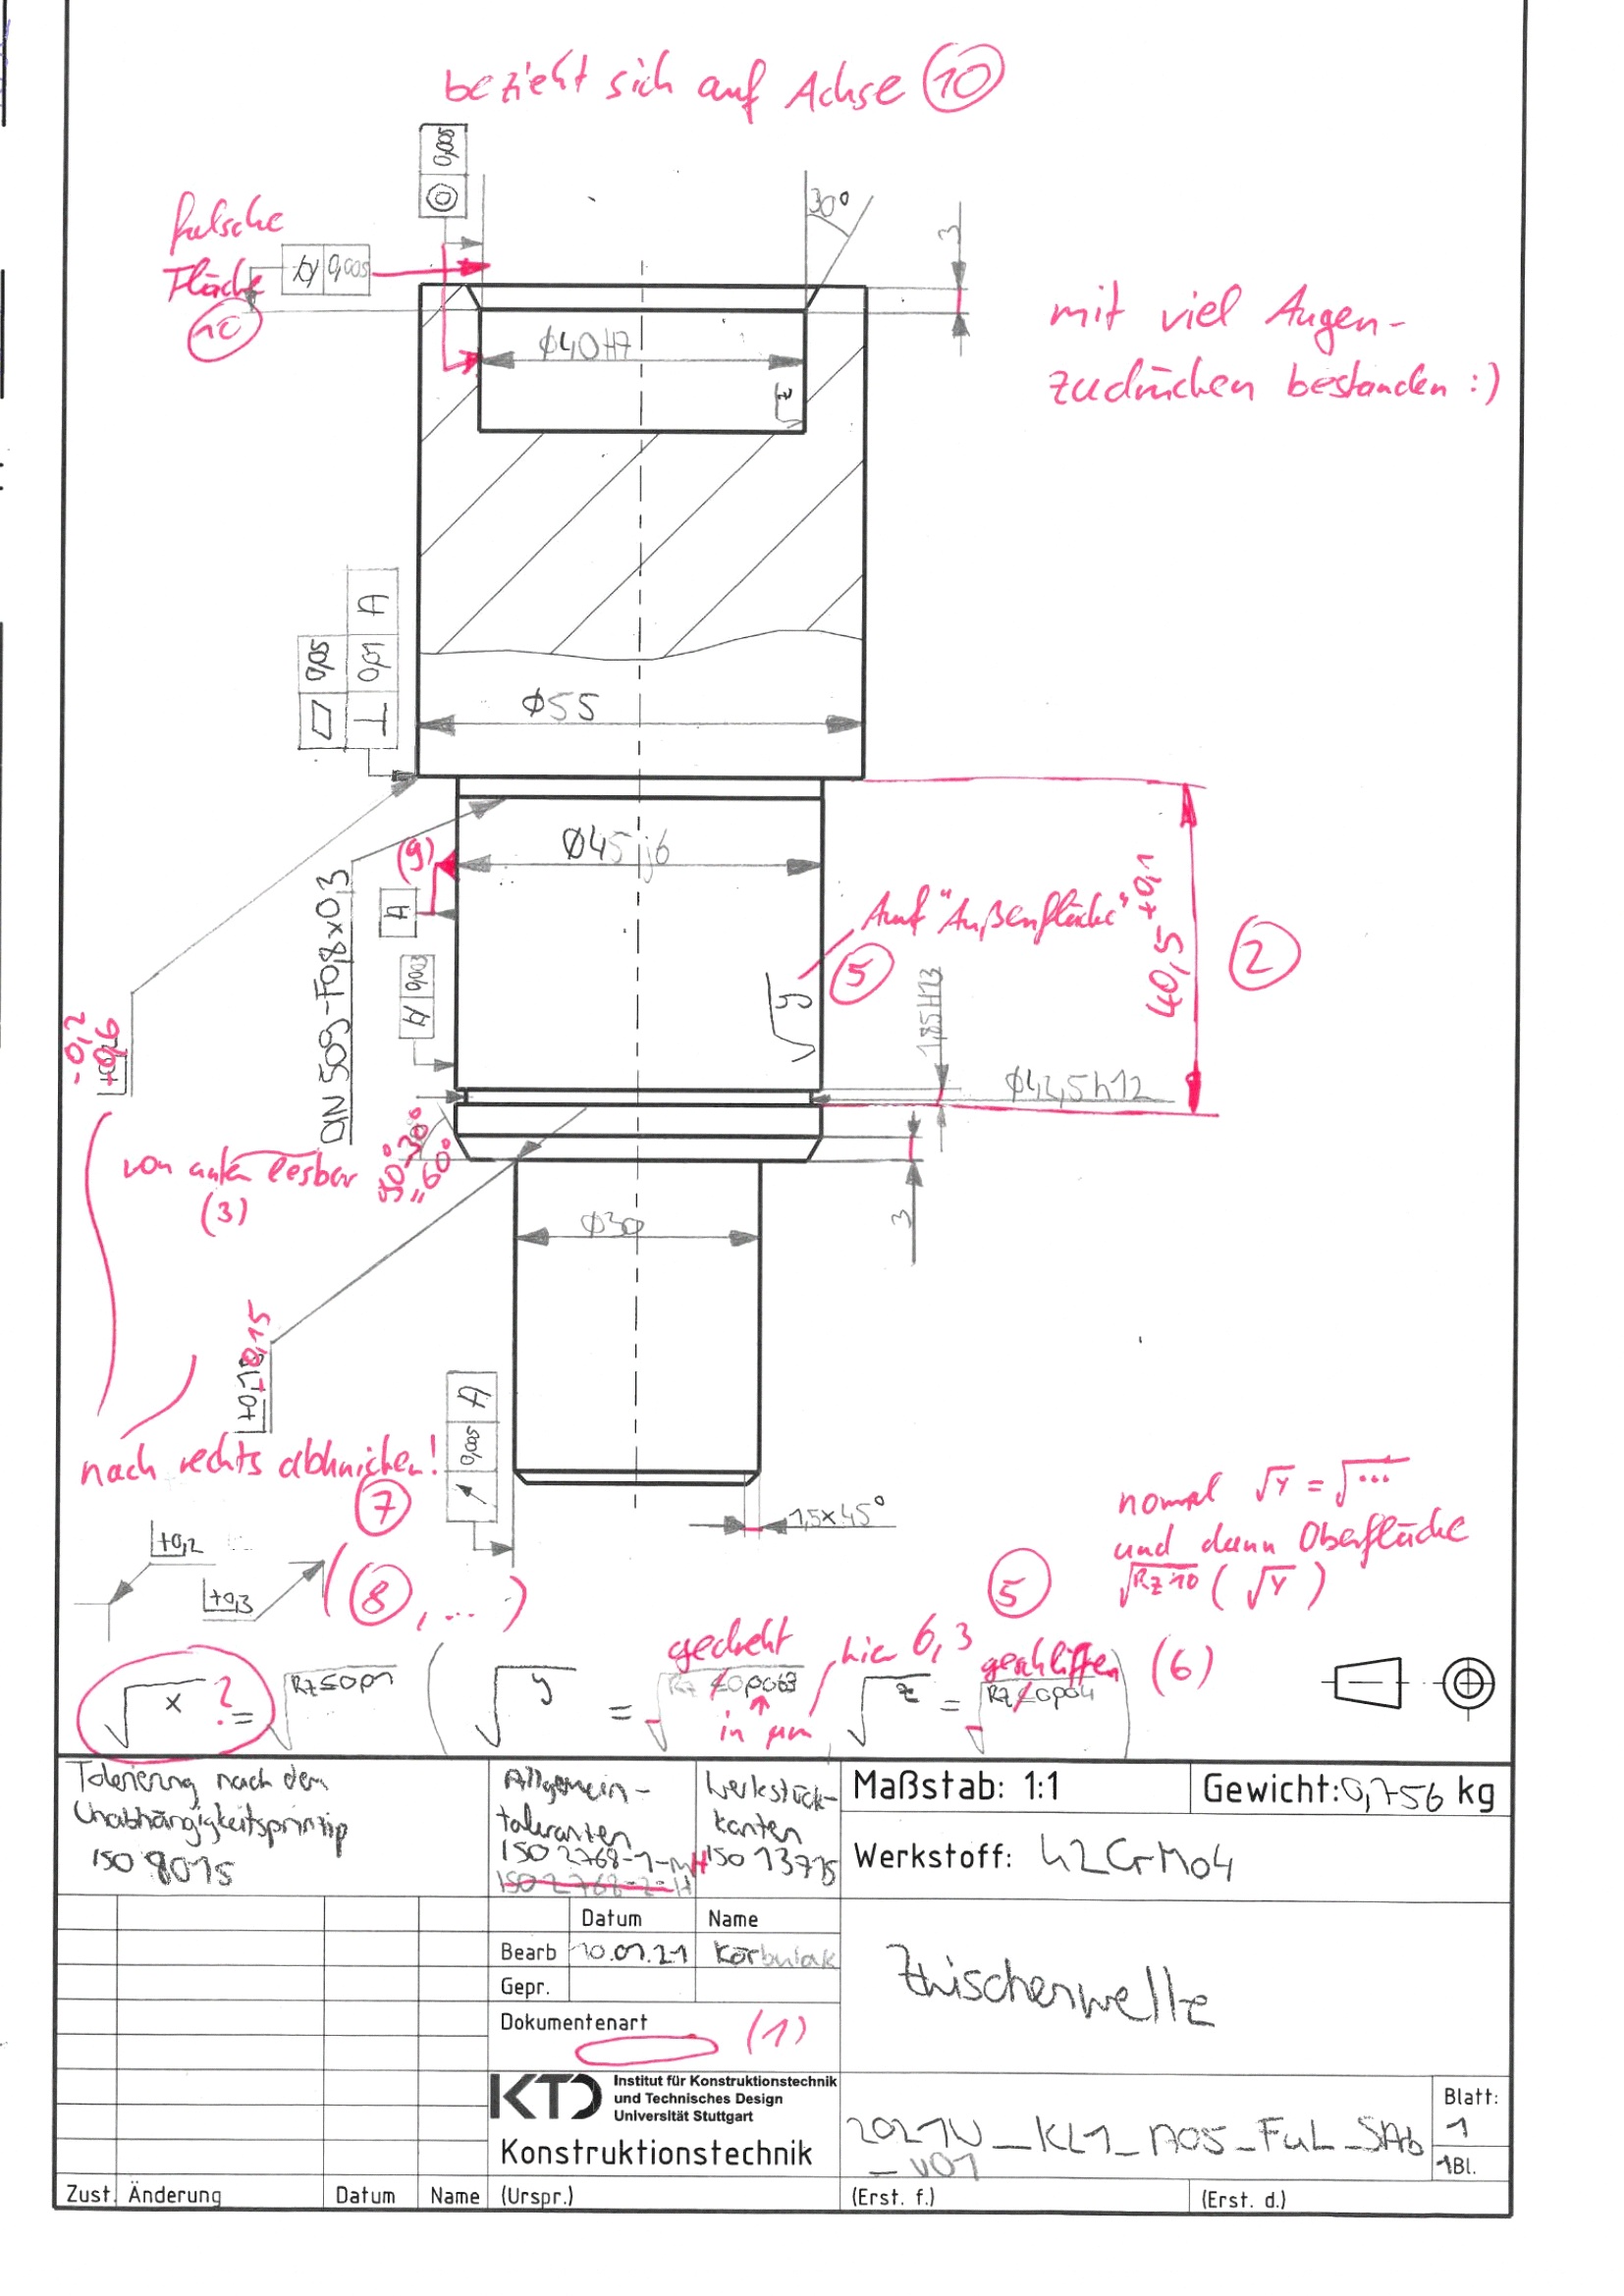 bezieht sich auf Achse 10
◎ 0,005
falsche
Fläche
10
⌭ 0,005
30°
3
mit viel Augen-
zudrücken bestanden :)
⌀40H7
z
⏥ 0,05
⊥ 0,01 A
⌀55
⌀45 j6
(9)
A
DIN 509-F0,8x0,3
⌭ 0,003
Auf "Außenfläche"
5
y
40,5 +0,1
2
1,85H13
⌀42,5h12
-0,2
-0,6
von unten lesbar
(3)
90°-30°
=60°
3
⌀30
-0,15
nach rechts abknicken!
7
↗ 0,005 A
1,5x45°
+0,2
+0,3
(8, ...)
5
normal √Y = √...
und dann Oberfläche
√Rz 10 (√Y)
√x ? = √Rz≤0,01 ( √y = √Rz ≤0,0063 √z = √Rz≤0,004 ) (6)
gedreht
hier 6,3
geschliffen
in µm
Tolerierung nach dem
Unabhängigkeitsprinzip
ISO 8015
Allgemein-
toleranzen
ISO 2768-1-mH
ISO 2768-2-H
Werkstück-
kanten
ISO 13715
Maßstab: 1:1
Gewicht: 0,756 kg
Werkstoff: 42CrMo4
Datum Name
Bearb 10.01.21
Gepr.
Dokumentenart (1)
Zwischenwelle
KTD
Institut für Konstruktionstechnik
und Technisches Design
Universität Stuttgart
Konstruktionstechnik
2021W_KL1_A05_FuL_SAb
_v01
Blatt:
1
1Bl.
Zust. Änderung Datum Name (Urspr.) (Erst. f.) (Erst. d.)